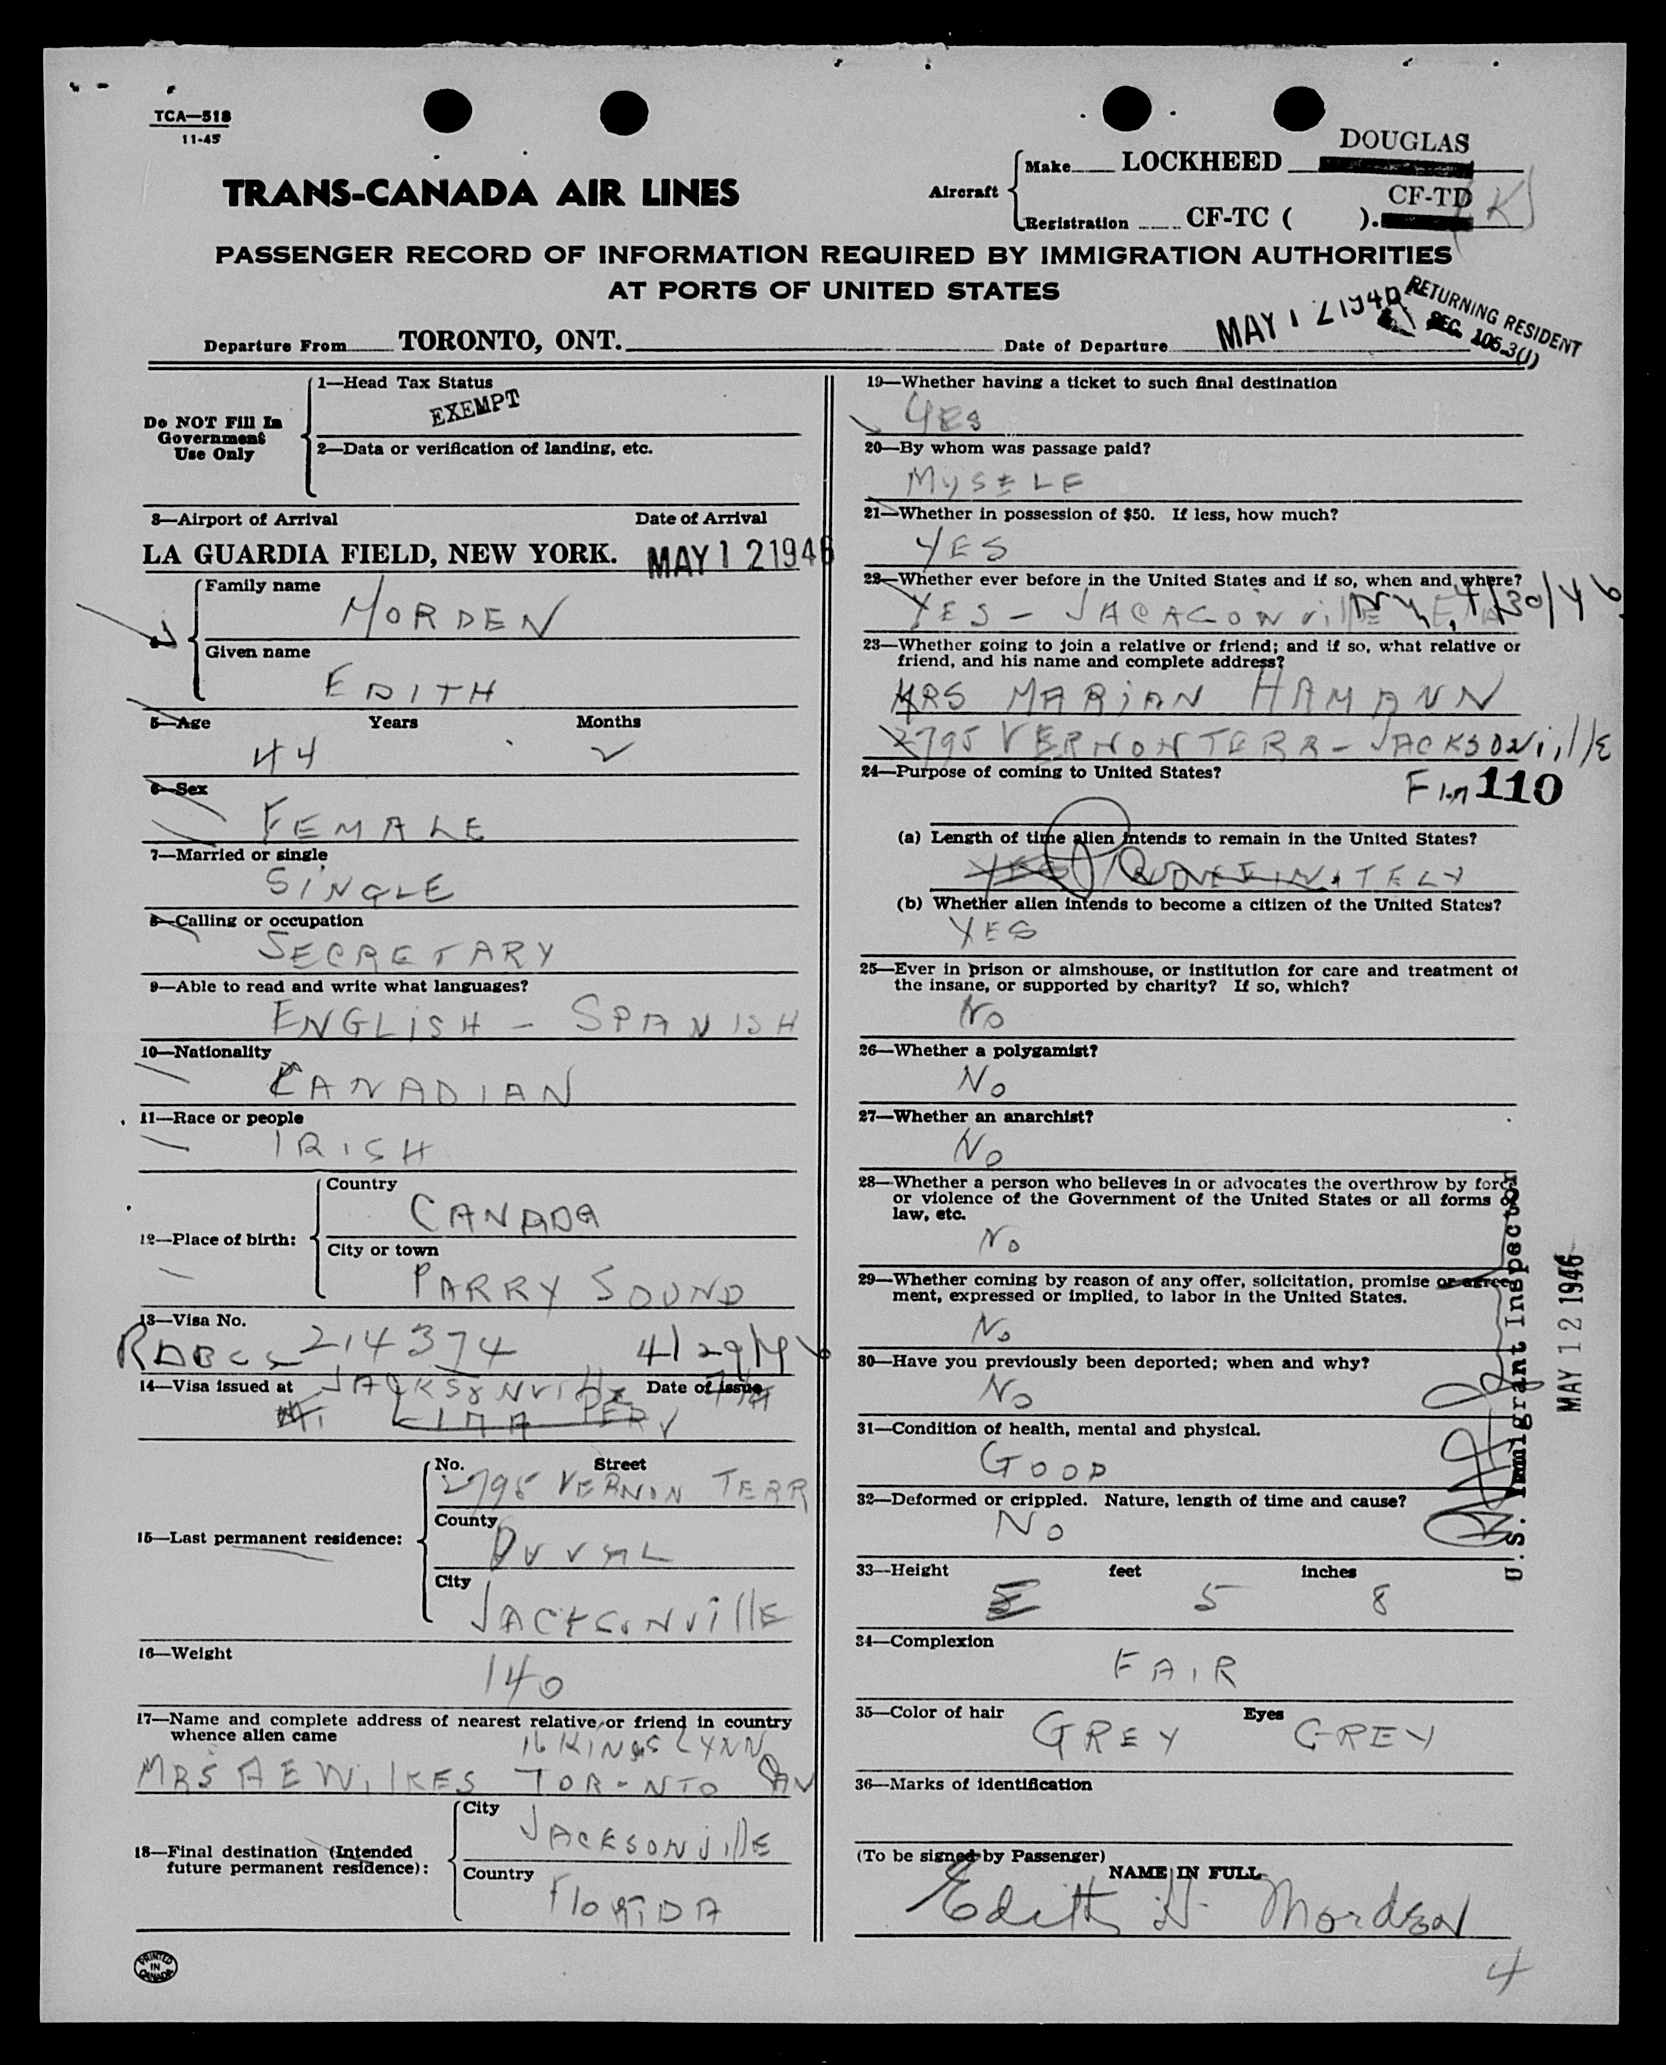 TCA—518
11-45
DOUGLAS
Aircraft Make LOCKHEED
CF-TD (K)
Registration CF-TC ( ).
TRANS-CANADA AIR LINES
PASSENGER RECORD OF INFORMATION REQUIRED BY IMMIGRATION AUTHORITIES
AT PORTS OF UNITED STATES
RETURNING RESIDENT
SEC. 105.3(1)
Departure From TORONTO, ONT. Date of Departure MAY 12 1946
Do NOT Fill In
Government
Use Only
1—Head Tax Status
EXEMPT
2—Data or verification of landing, etc.
3—Airport of Arrival Date of Arrival
LA GUARDIA FIELD, NEW YORK. MAY 12 1946
Family name
MORDEN
Given name
EDITH
5—Age Years Months
44 2
6—Sex
FEMALE
7—Married or single
SINGLE
8—Calling or occupation
SECRETARY
9—Able to read and write what languages?
ENGLISH - SPANISH
10—Nationality
CANADIAN
11—Race or people
IRISH
12—Place of birth:
Country
CANADA
City or town
PARRY SOUND
13—Visa No.
214374 4/29/46
14—Visa issued at Date of issue
JACKSONVILLE
LIMA PERU
15—Last permanent residence:
No. Street
2795 VERNON TERR
County
DUVAL
City
JACKSONVILLE
16—Weight
140
17—Name and complete address of nearest relative or friend in country
whence alien came
16 KINGS LYNN
MRS A E WILKES TORONTO
18—Final destination (Intended
future permanent residence):
City
JACKSONVILLE
Country
FLORIDA
PRINTED
IN
CANADA
19—Whether having a ticket to such final destination
YES
20—By whom was passage paid?
MYSELF
21—Whether in possession of $50. If less, how much?
YES
22—Whether ever before in the United States and if so, when and where?
YES - JACKSONVILLE 4/30/46
23—Whether going to join a relative or friend; and if so, what relative or
friend, and his name and complete address?
MRS MARIAN HAMANN
2795 VERNON TERR - JACKSONVILLE
24—Purpose of coming to United States?
110
(a) Length of time alien intends to remain in the United States?
YES INDEFINITELY
(b) Whether alien intends to become a citizen of the United States?
YES
25—Ever in prison or almshouse, or institution for care and treatment of
the insane, or supported by charity? If so, which?
NO
26—Whether a polygamist?
NO
27—Whether an anarchist?
NO
28—Whether a person who believes in or advocates the overthrow by force
or violence of the Government of the United States or all forms of
law, etc.
NO
29—Whether coming by reason of any offer, solicitation, promise or agree-
ment, expressed or implied, to labor in the United States.
NO
30—Have you previously been deported; when and why?
NO
31—Condition of health, mental and physical.
GOOD
32—Deformed or crippled. Nature, length of time and cause?
NO
33—Height feet inches
5 8
34—Complexion
FAIR
35—Color of hair Eyes
GREY GREY
36—Marks of identification
U.S. Immigrant Inspector
MAY 12 1946
(To be signed by Passenger)
NAME IN FULL
Edith H. Morden
4